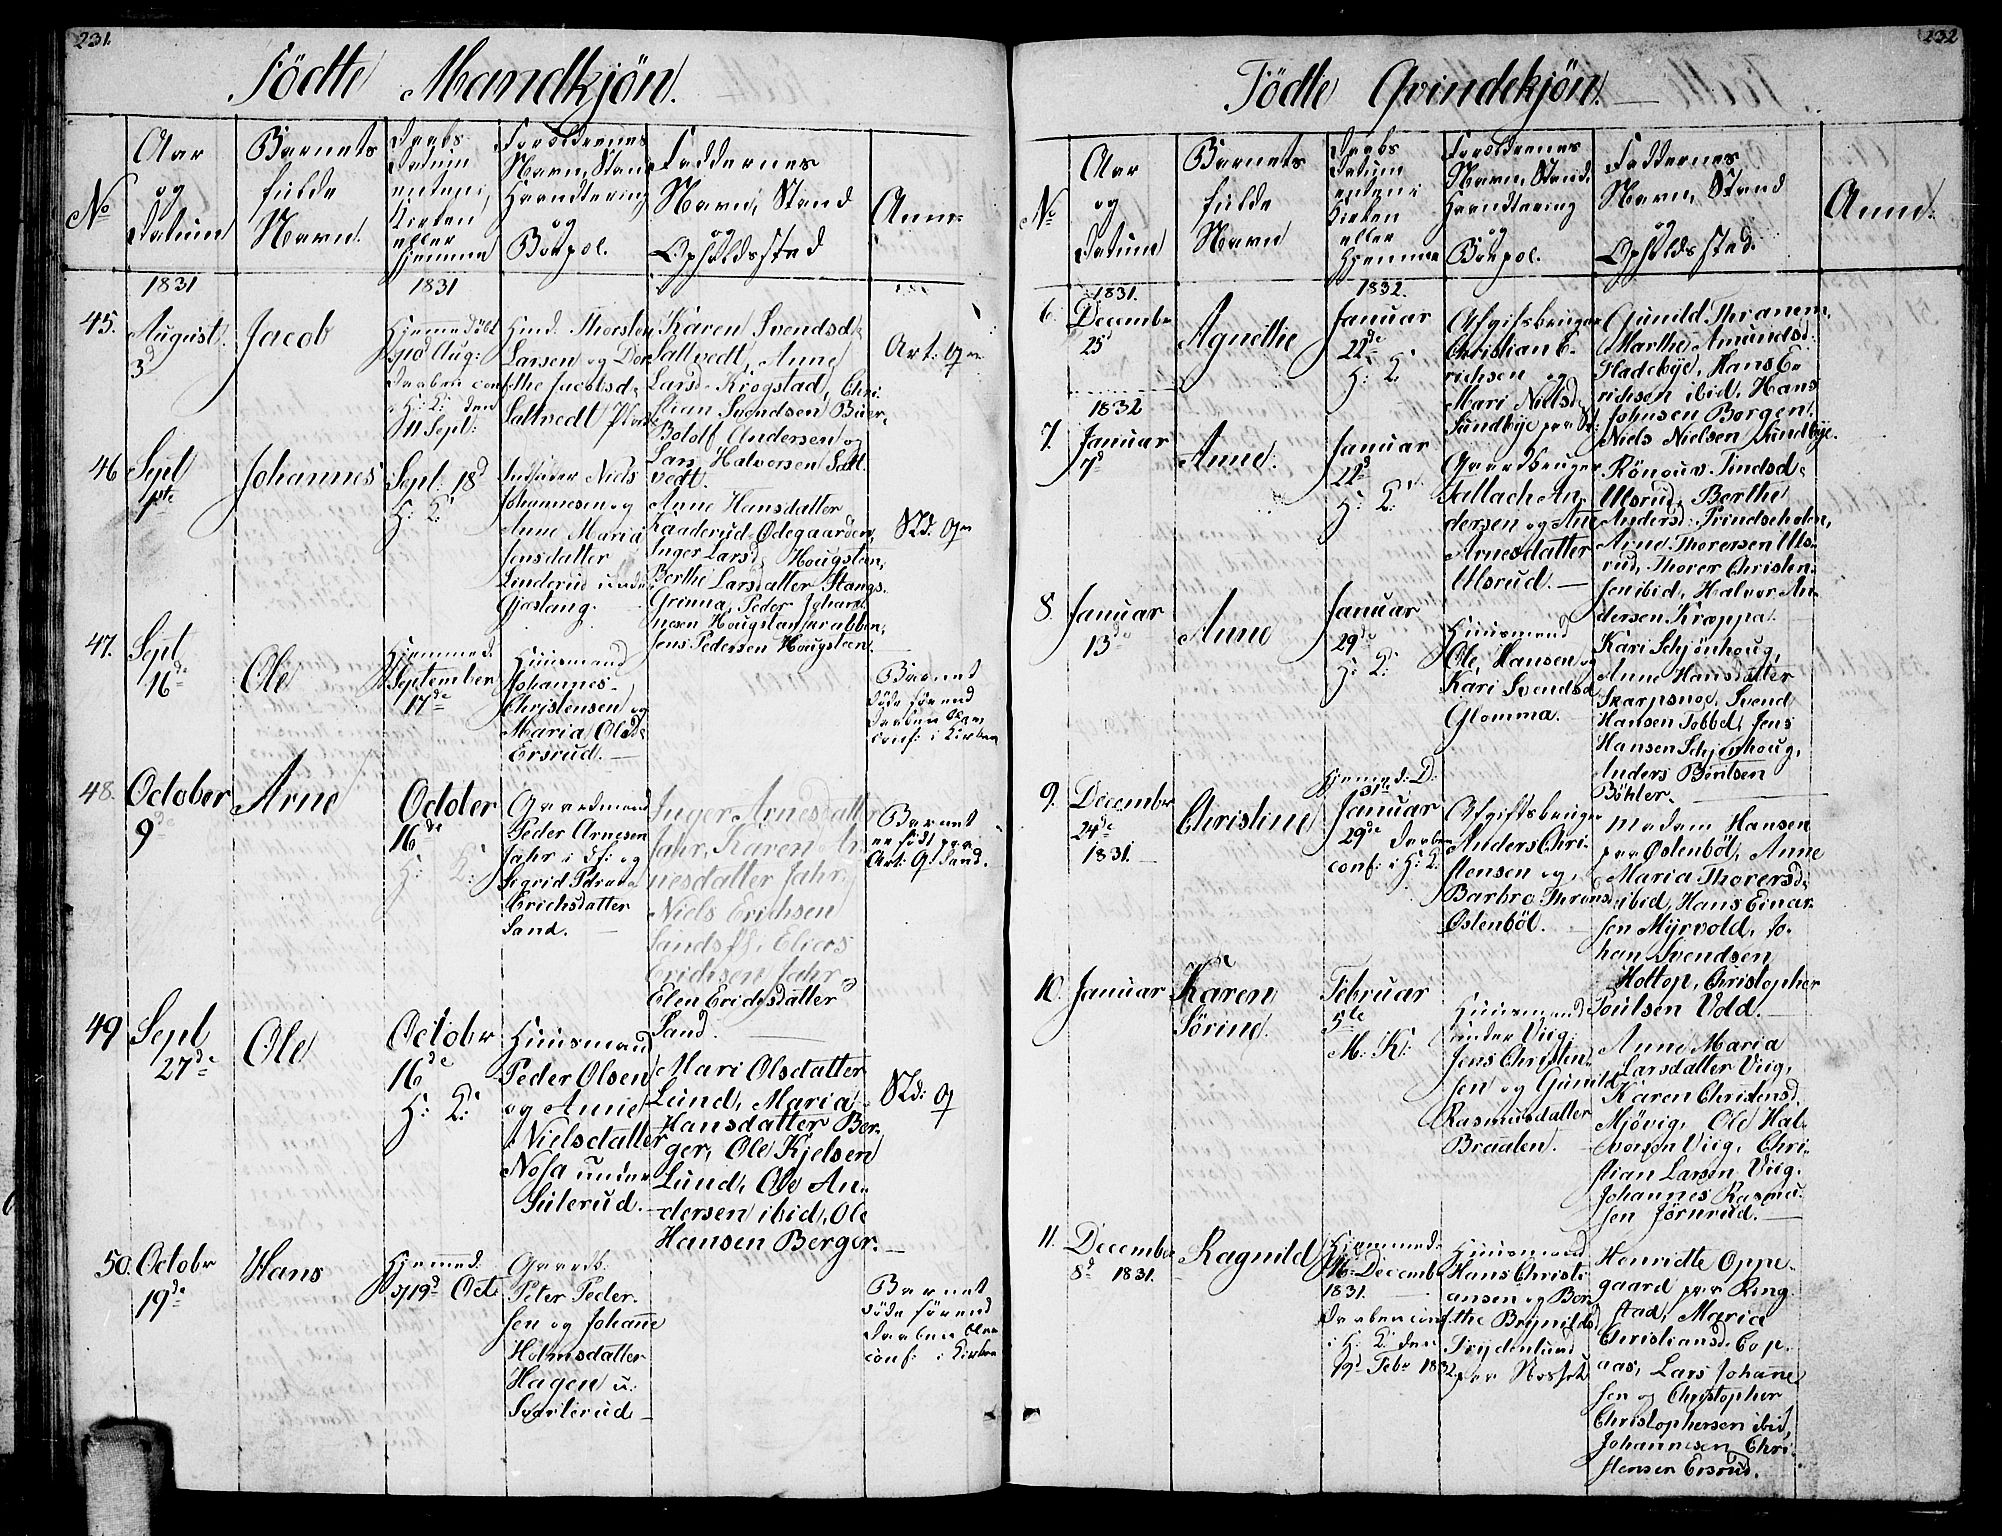 231.
Födte Mandkjön.
No
Aar
og
Datum
Barnets
fulde
Navn.
Daabs
Datum
enten i
Kirken
eller
Hjemme
Forældrenes
Navn, Stand
Haandtering
og
Boepæl.
Faddernes
Navn, Stand
og
Opholdssted
Anm:
1831
1831
45.
August
3d
Jacob
Hjemmedöbt
10 Aug:
Daaben conf.
i H: K: den
11 Sept:
Huusm. Thorsten
Larsen og Dor-
the Jacobsd.
Saltvedt
Karen Svendsd.
Saltvedt, Anne
Larsd. Krogstad, Chri-
stian Svendsen Buer,
Bololf Andersen og
Lars Halvorsen Salt-
vedt.
Art: Qn
46
Sept
1ste
Johannes
Sept: 18d
H: K:
Inderster Niels
Johannesen og
Anne Maria
Jensdatter
Linderud under
Gjæslang.
Anne Hansdatter
Kaaderud Ödegaarden,
Inger Larsd. Hougsteen,
Berthe Larsdatter Stangs-
Grinna, Peder Johan-
nesen Hougsteensrabben,
Jens Pedersen Hougsteen.
Nd: Qn
47.
Sept
16de
Ole
Hjemmed.
September
17de
Huusmand
Johannes
Christensen og
Maria Olsd.
Ersrud.
Barnet
döde förend
Daaben blev
conf: i Kirken
48.
October
9de
Arne
October
16de
H: K:
Gaardmand
Peder Arnesen
Jahr i Ff: og
Sigrid
Erichsdatter
Sand.
Inger Arnesdatter
Jahr, Karen Ar-
nesdatter Jahr,
Niels Erichsen
Sand, Eliers
Erichsen Jahr og
Elen Erichsdatter
Sand.
Barnet
er födt paa
Art: Q: Sand.
49
Sept
27de
Ole
Octobr
16de
H: K:
Huusmand
Peder Olsen
og Anne
Nielsdatter
Nosa under
Sulerud.
Mari Olsdatter
Lund, Maria
Hansdatter Ber-
ger, Ole Kjelsen
Lund, Ole An-
dersen ibid, Ole
Hansen Berger.
Nd: Q
50.
Octobr
19de
Hans
Hjemmed.
19d Oct
Gaardb:
Peter Peder-
sen og Johanne
Holmsdatter
Hagen u:
Svarterud
Barnet
döde förend
Daaben blev
conf: i Kirken
232
Födte Qvindekjön.
No
Aar
og
Datum
Barnets
fulde
Navn
Daabs
Datum
enten i
Kirken
eller
Hjemme
Forældrenes
Navn, Stand,
Haandtering
og
Boepæl.
Faddernes
Navn, Stand
og
Opholdssted.
Anm:
1831.
1832.
6.
December
25
Agnethe
Januar
22de
H: K:
Afgiftsbruger
Christian E-
richsen og
Mari Nielsd.
Sundbye
Gunild Thranem,
Marthe Amundsd.
Fladebye, Hans E-
richsen ibid, Hans
Johnsen Borgen,
Niels Nielsen Sundbye.
1832
7.
Januar
7d
Anne.
Januar
22d
H: K:
Gaardbruger
Tallach An-
dersen og Ane
Arnesdatter
Ulsrud.
Rönnous Tindsd.
Ulsrud, Berthe
Andersd. Prindseholm,
Arne Thorersen Uls-
rud, Thorer Christen-
sen ibid, Halvor An-
dersen Krappa.
8.
Januar
13de
Anne
Januar
29de
H: K:
Huusmand
Ole Hansen og
Kari Svendsd.
Glomma.
Kari Schjönhoug,
Anne Hansdatter
Skarpsnoe, Svend
Hansen Tobbel, Jens
Hansen Schjönhoug,
Anders Bentsen
Böhler.
9.
December
24de
1831.
Christine
Hjemmed: D:
31te
Januar
29de Daaben
conf: i H: K:
Afgiftsbruger
Anders Chri-
stensen og
Barbro Thronsd.
Östenböl.
Madam Hansen
paa Östenböl, Anne
Maria Thorersd.
ibid, Hans Einar-
sen Myrvold, Jo-
han Svendsen
Holtop, Christopher
Poulsen Vold.
10.
Januar
Karen
Sörine.
Februar
5te
M: K:
Huusmand
under Viig
Jens Christen-
sen og Gunild
Rasmusdatter
Braalen.
Anne Maria
Larsdatter Viig,
Karen Christensd.
Mjövig, Ole Hal-
vorsen Viig, Chri-
stian Larsen Viig,
Johannes Rasmu-
sen Jörnrud.
11.
December
8d 1831.
Ragnild
Hjemmed.
16. Decemb
1831.
Daaben conf.
i H: K: den
19d Febr 1832
Huusmand
Hans Christi-
ansen og Ber-
the Brynildsd.
Frydenlund
paa Nosset
Henridte Oppe-
gaard paa Ring-
stad, Maria
Christiansd. Cop-
aas, Lars Johanne-
sen og Christopher
Christophersen ibid,
Johannesen Chri-
stensen Ersrud.